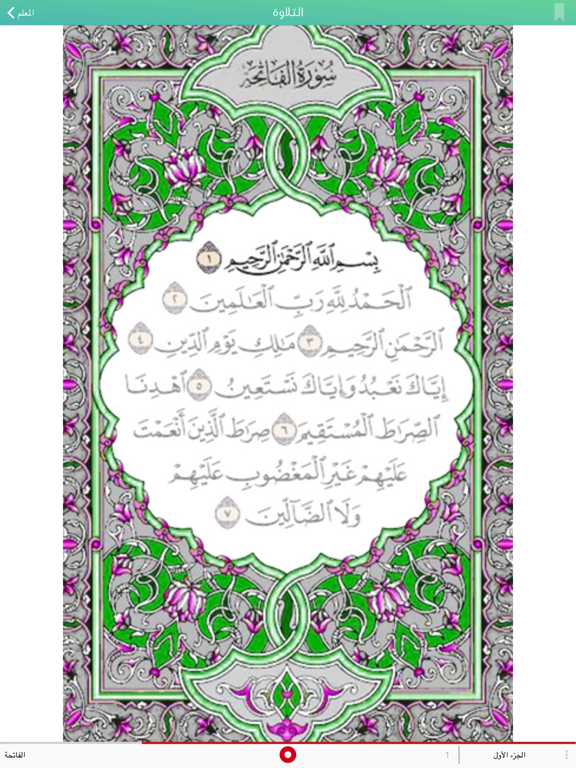 المعلم
التلاوة
سُورَةُ الفَاتِحَةِ
بِسْمِ ٱللَّهِ ٱلرَّحْمَٰنِ ٱلرَّحِيمِ ١
ٱلْحَمْدُ لِلَّهِ رَبِّ ٱلْعَٰلَمِينَ ٢
ٱلرَّحْمَٰنِ ٱلرَّحِيمِ ٣ مَٰلِكِ يَوْمِ ٱلدِّينِ ٤
إِيَّاكَ نَعْبُدُ وَإِيَّاكَ نَسْتَعِينُ ٥ ٱهْدِنَا
ٱلصِّرَٰطَ ٱلْمُسْتَقِيمَ ٦ صِرَٰطَ ٱلَّذِينَ أَنْعَمْتَ
عَلَيْهِمْ غَيْرِ ٱلْمَغْضُوبِ عَلَيْهِمْ
وَلَا ٱلضَّآلِّينَ ٧
الجزء الأول
١
الفاتحة